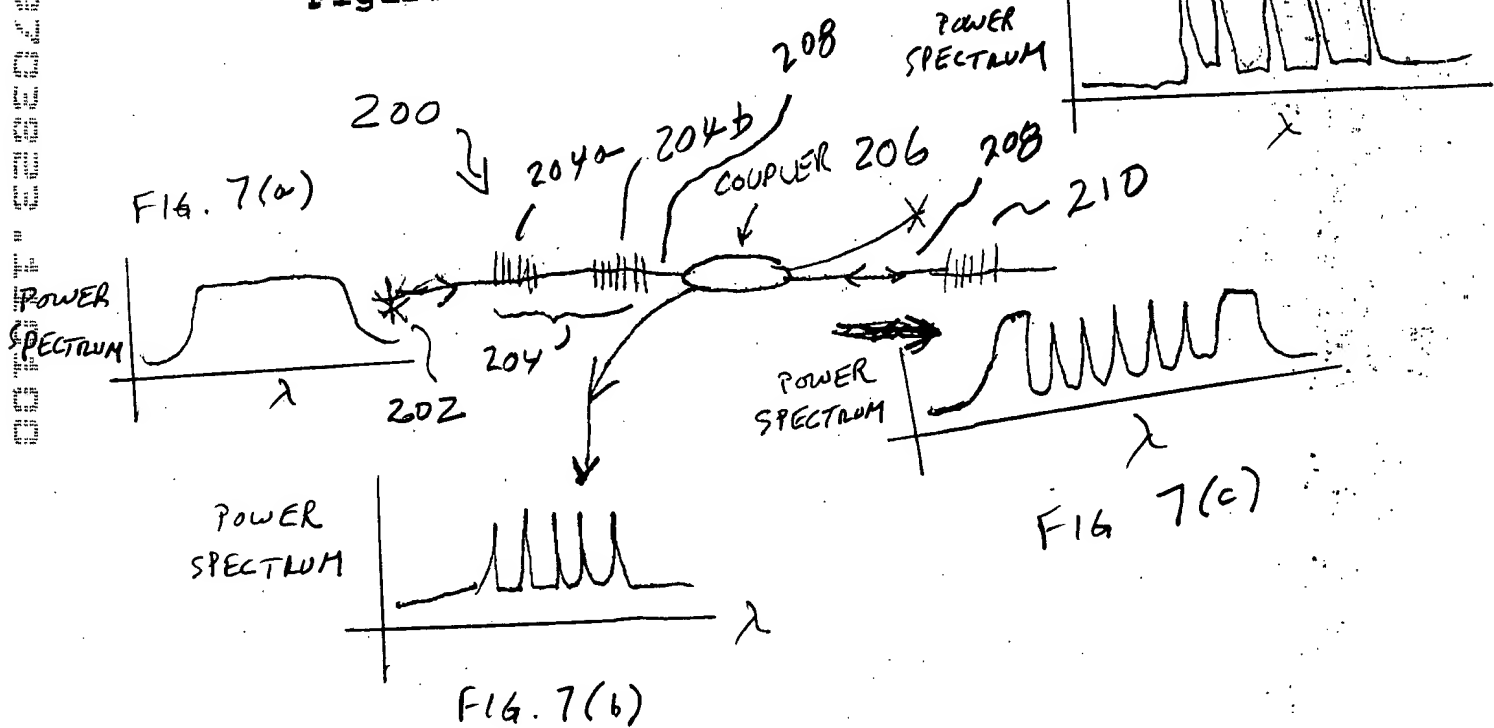 POWER
SPECTRUM
λ
208
200
204a
204b
COUPLER 206
208
210
FIG. 7(a)
POWER
SPECTRUM
λ
202
204
POWER
SPECTRUM
λ
FIG 7(c)
POWER
SPECTRUM
λ
FIG. 7(b)